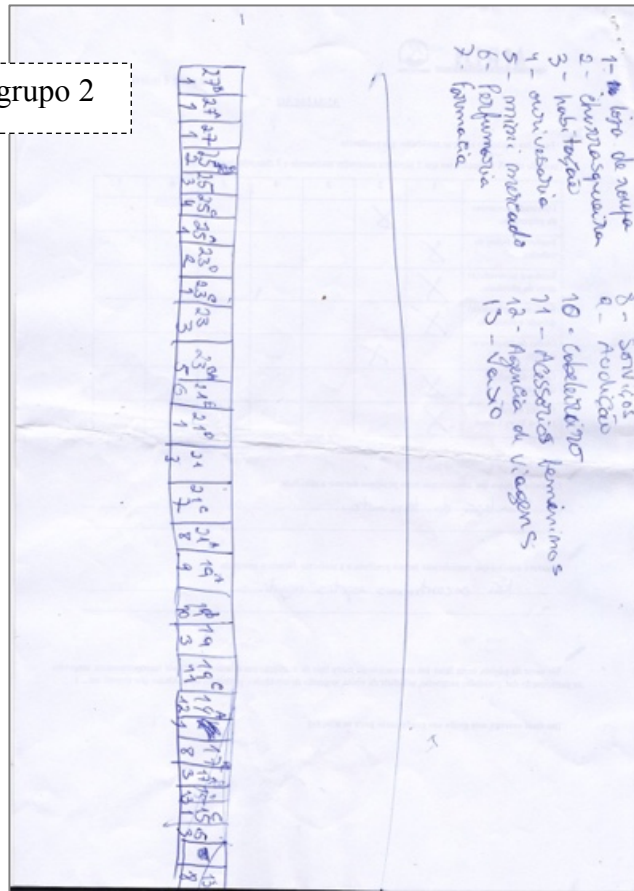 grupo 2
1 - loja de roupa
2 - churrasqueira
3 - habitação
4 - ourivesaria
5 - mini mercado
6 - Perfumaria
7 farmacia
8 - Serviços
9 - Audição
10 - Cabeleireiro
11 - Acessorios femeninos
12 - Agencia de viagens
13 - Vazio
27B 27A 27 25 25 25C 25A 23D 23C 23 23A 21E 21D 21 21C 21A 19A 19B 19 19C 17A
1 1 1 2 3 4 1 2 1 3 5 6 1 3 7 8 9 10 3 11 12 1 8 3 13